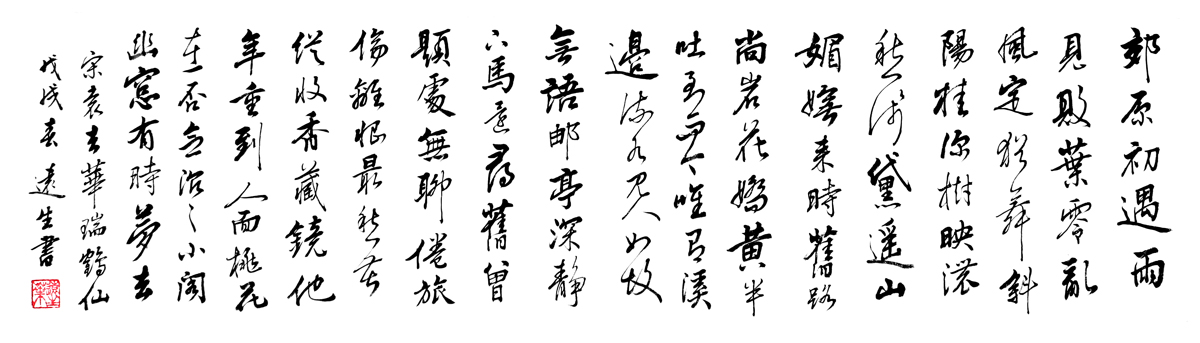 郊原初遇雨
見敗葉零亂
風定猶舞斜
陽挂深樹映濃
愁淺黛遥山
媚嫵来時舊路
尚岩花嬌黄半
吐到而今唯有溪
邊流水見人如故
無語邮亭深静
下馬還尋舊曾
題處無聊倦旅
傷離恨最愁苦
縱收香藏鏡他
年重到人面桃花
在否念沉々小阁
幽窓有時夢去
宋袁去華瑞鶴仙
戊戌春遠生書